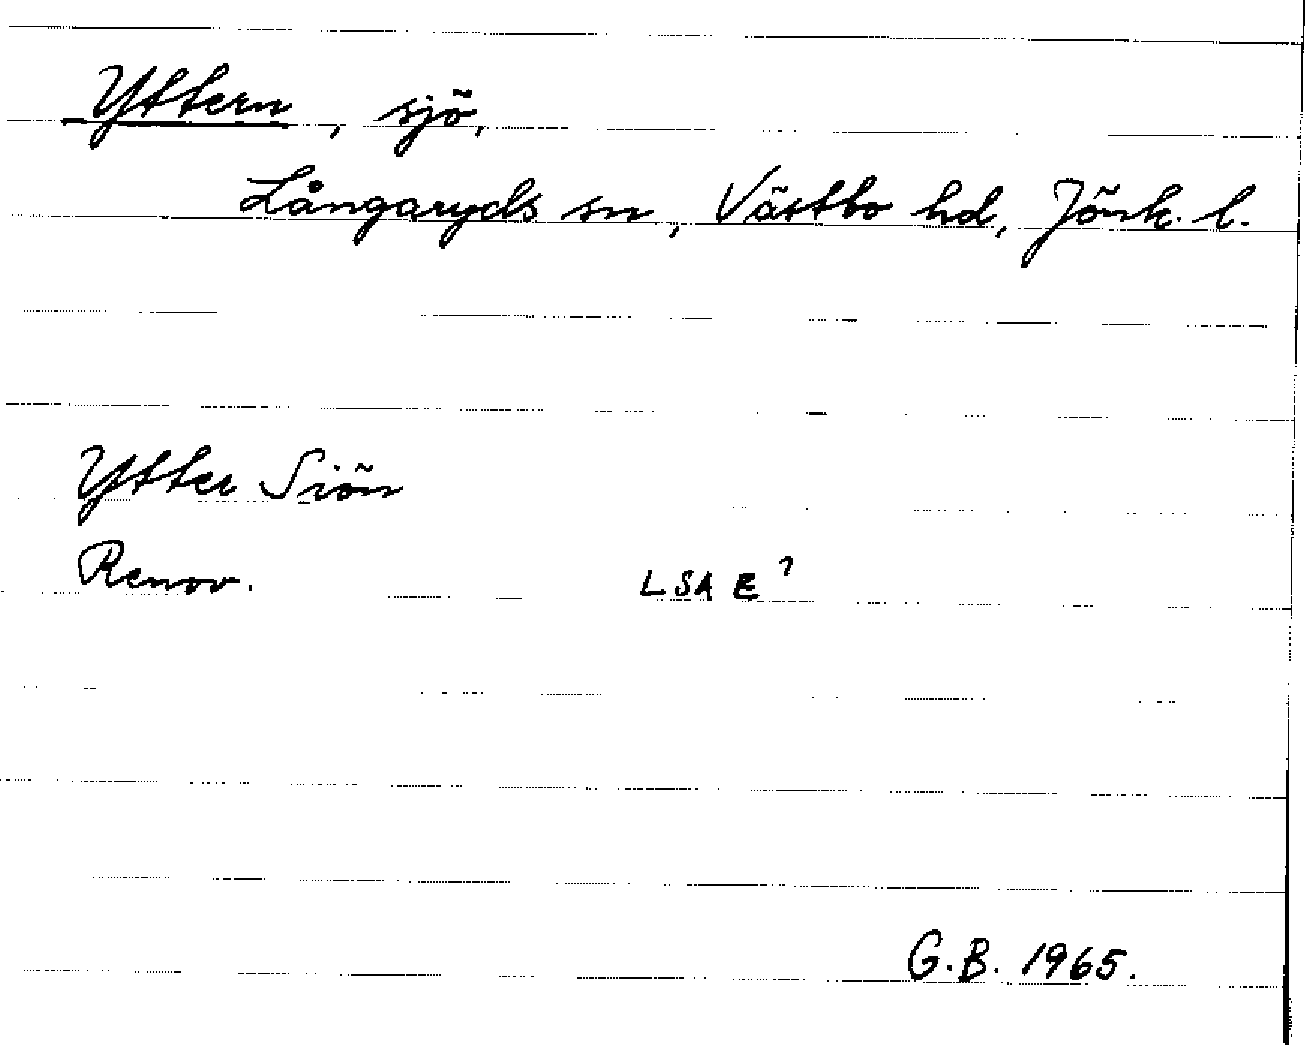 Yttern, sjö,
Långaryds sn, Västbo hd, Jönk. l.
Ytter Siön
Renov. LSA E?
G.B. 1965.